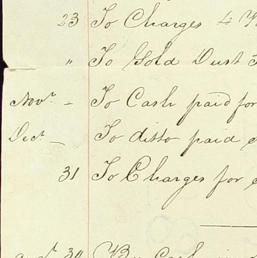 23 To Charges 4
" To Gold Dust
Novr - To Cash paid for
Dect - To ditto paid
31 To Charges for
30 By Cash